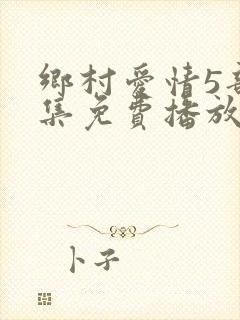 鄉村愛情5
集免費播放
卜子